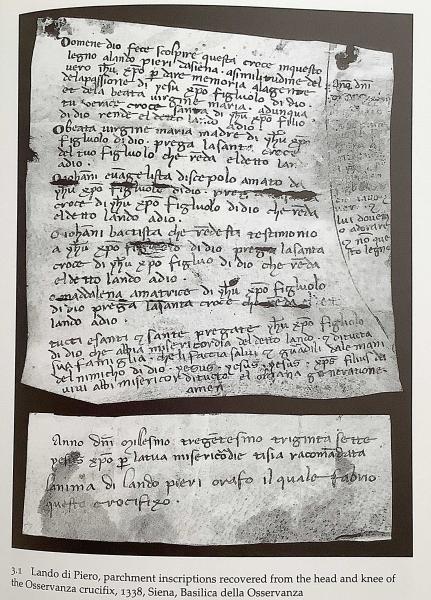 Domene dio fece scolpire questa croce inquesto
legno alando pieri dasiena asimilitudine del
vero ihu xpo p dare memoria alagente
delapassione di yesu xpo figluolo di dio
et dela beata virgine maria. adunqua
tu verace croce santa di yhu xpo filio
di dio rende eldetto lando adio
Obeata virgine maria madre di yhu xpo
figluolo di dio. prega lasante croce
del tuo figluolo che reda eldetto lan
adio.
Oiohani evagelista discepolo amato de
yhu xpo figluolo didio. prega
croce di yhu xpo figluolo didio che reda
eldetto lando adio.
Oiohani bactista che redesti testimonio
a yhu xpo figluolo di dio prega lasanta
croce di yhu xpo figluo di dio che reda
eldetto lando adio.
Omadalena amatrice di yhu xpo figluolo
di dio prega lasanta croce che reda
lando adio.
tucti esanti et sante pregate yhu xpo figluolo
di dio che abbia misericordia deldetto lando et ditucta
sua famigla che lifaccia salvi et guardili dale mani
del nimicho di dio. yesus. yesus. yesus. xps. filius dei
vivi abbi misericor ditucta el umana generatione.
amen
Anno dni
lui dovem
adorare
et no que
sto legno
Anno dni Milesimo tregetesimo triginta sette
yesus xpo p latua misericordie tisia racomadata
lanima di lando pieri orafo il quale fabrio
questo crocifixo.
3.1 Lando di Piero, parchment inscriptions recovered from the head and knee of
the Osservanza crucifix, 1338, Siena, Basilica della Osservanza